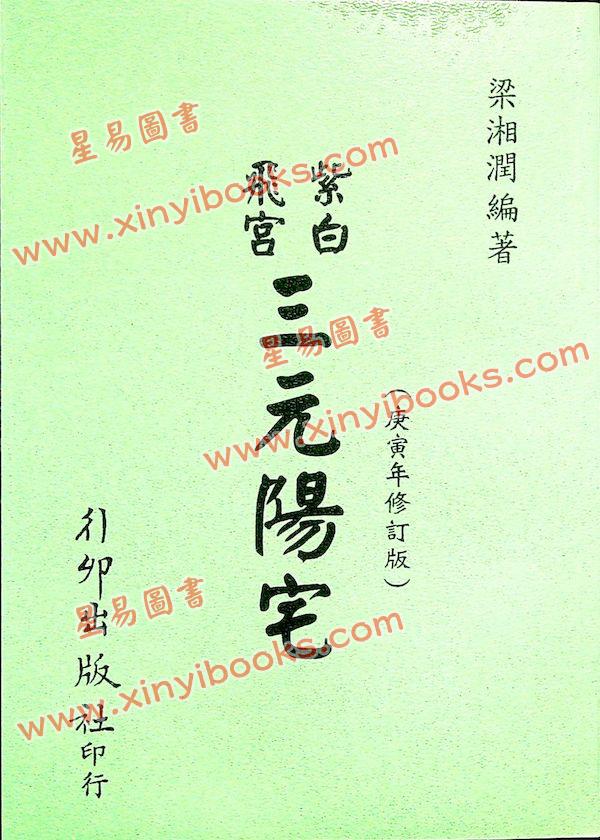 梁湘潤編著
紫白
飛宮
三元陽宅
(庚寅年修訂版)
行卯出版社印行
星易圖書
www.xinyibooks.com
星易圖書
www.xinyibooks.com
星易圖書
www.xinyibooks.com